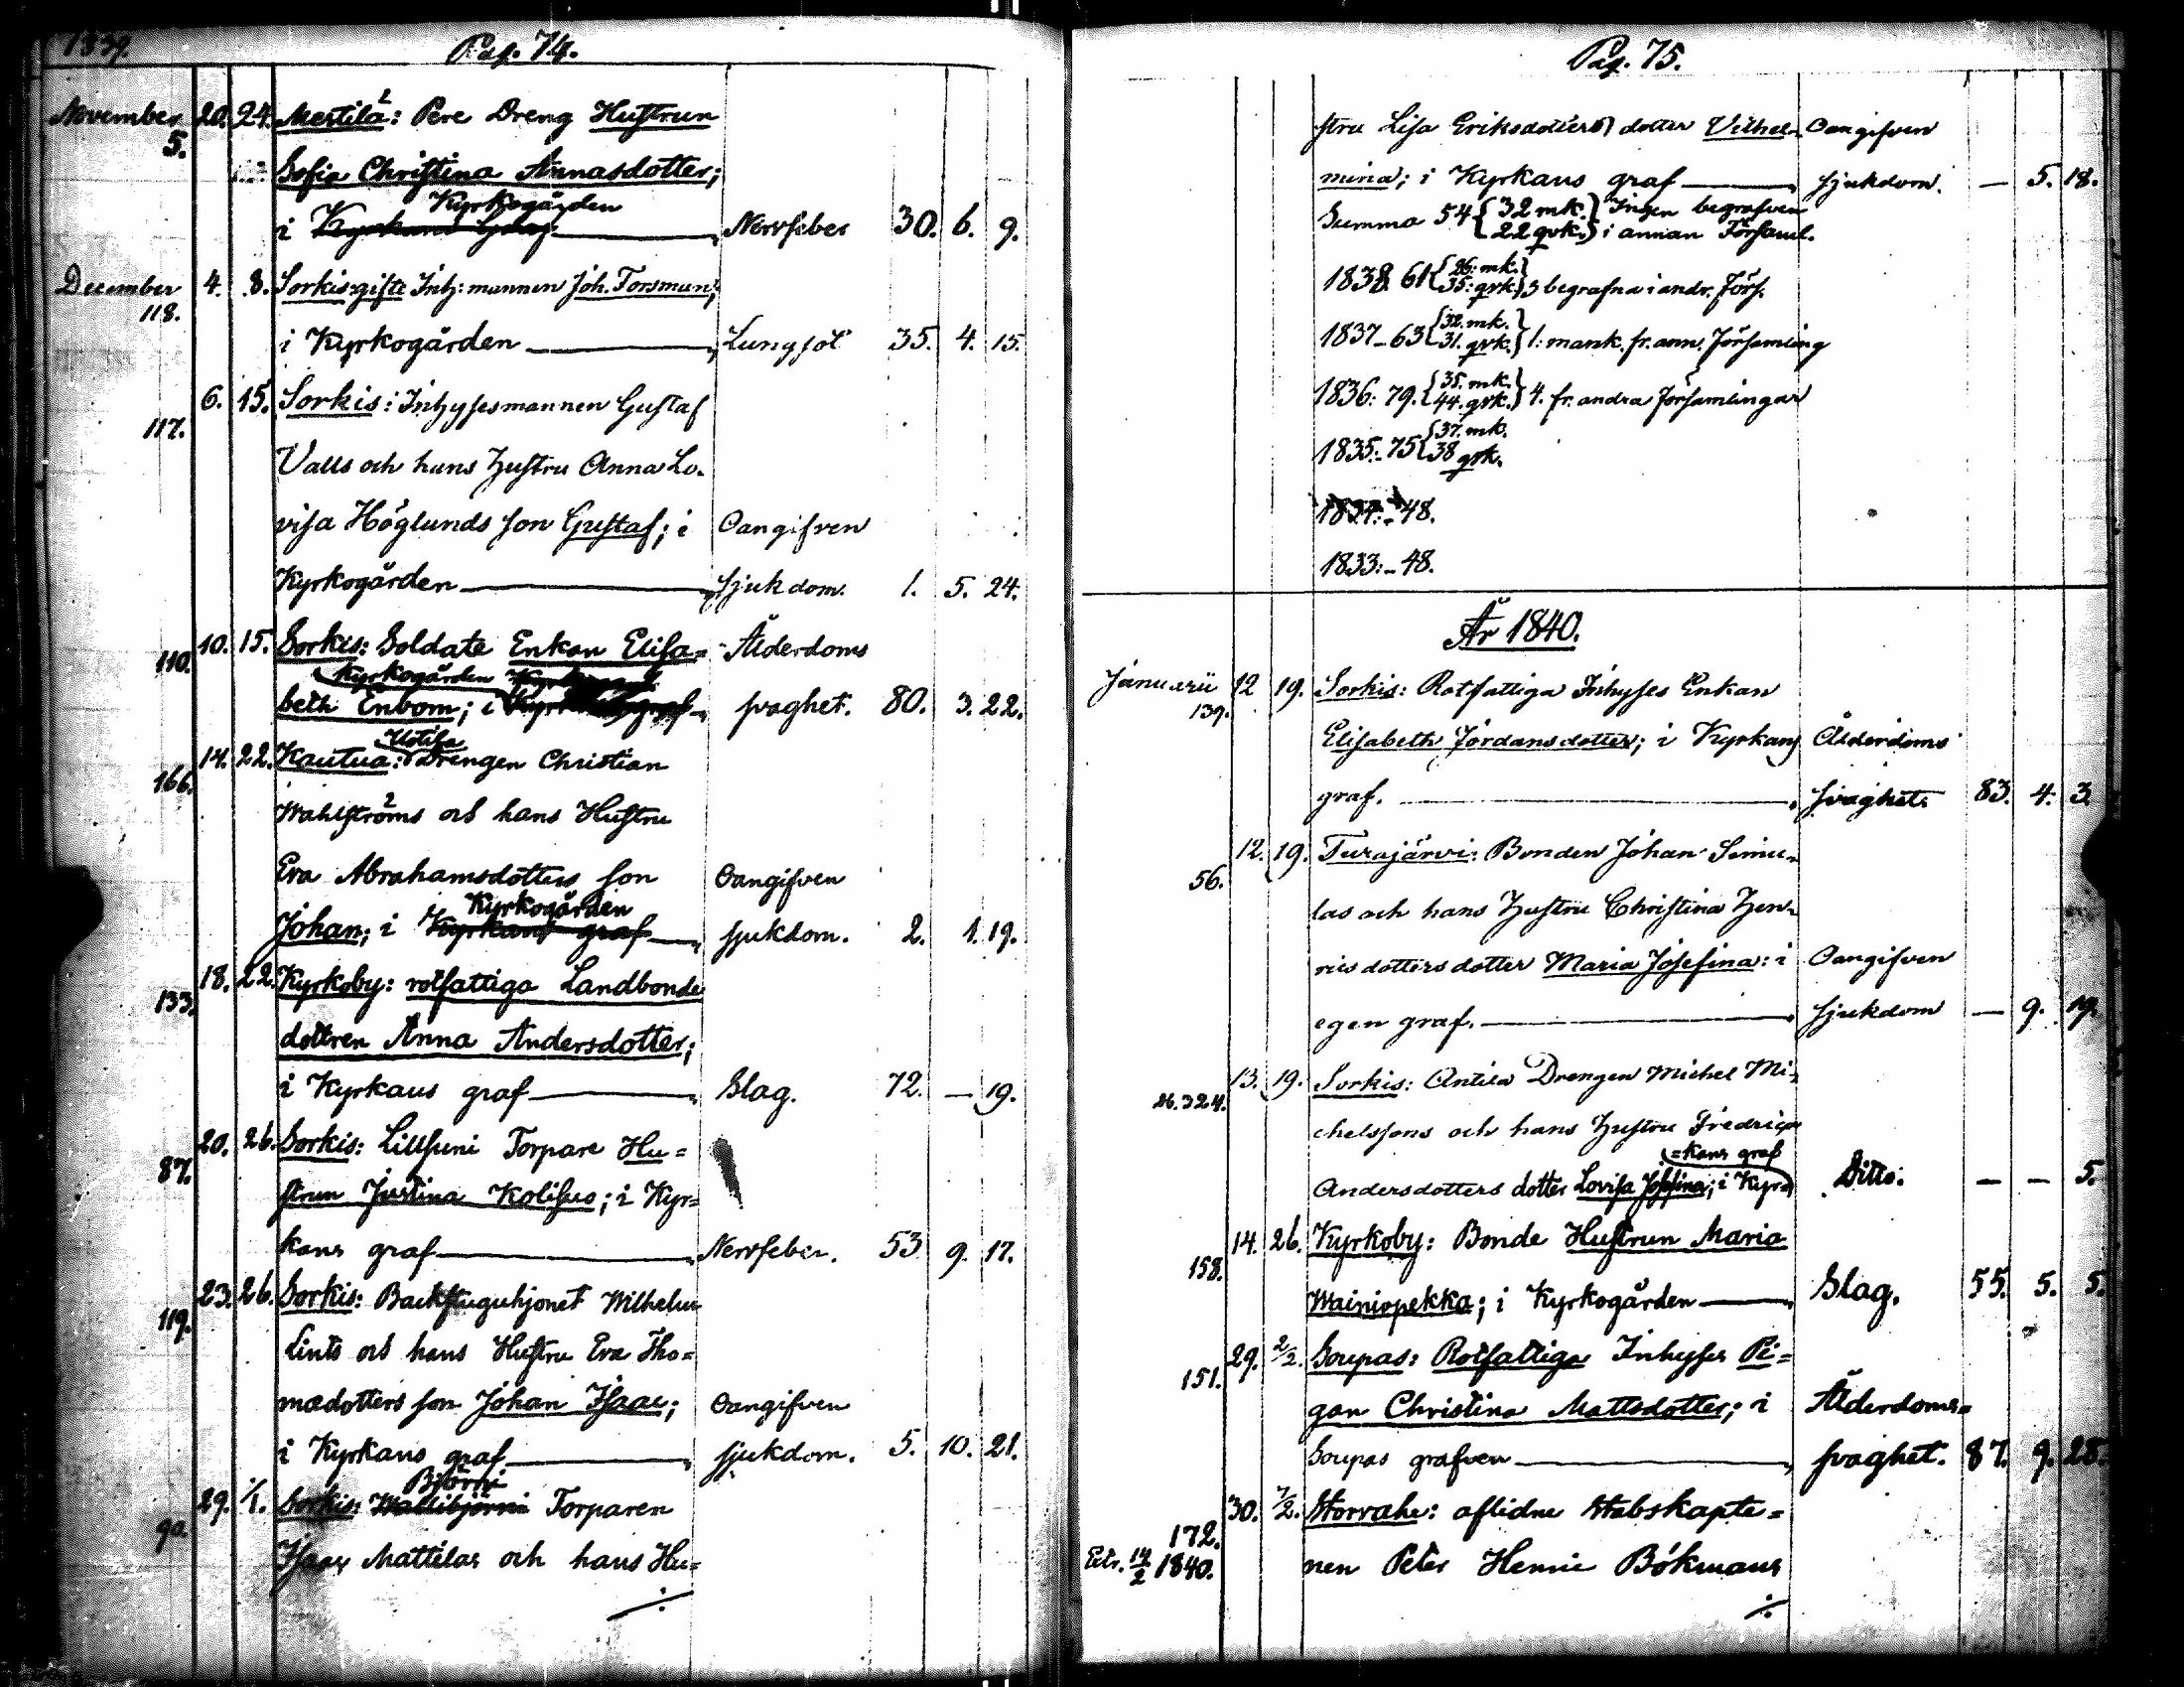 1839.
Pag. 74.
November 20. 24. Mestilä: Pere Dreng Hustrun
5.
Sofia Christina Annasdotter;
Kyrkogården
i Kyrkans graf Nervfeber 30. 6. 9.
December 4. 8. Sorkis: gifte Inh: mannen Joh. Forsman;
118.
i Kyrkogården Lungsot 35. 4. 15.
6. 15. Sorkis: Inhysesmannen Gustaf
117.
Valls och hans hustru Anna Lo-
visa Höglunds son Gustaf; i Oangifven
Kyrkogården sjukdom. 1. 5. 24.
10. 15. Sorkis: Soldate Enkan Elisa= Ålderdoms
110.
Kyrkogården
beth Enbom; i Kyrkans graf svaghet. 80. 3. 22.
Uotila
14. 22. Kautua: Drengen Christian
166.
Wahlströms och hans Hustru
Eva Abrahamsdotters son Oangifven
Kyrkogården
Johan; i Kyrkans graf sjukdom. 2. 1. 19.
18. 22. Kyrkoby: rotfattiga Landbonde
133.
dottren Anna Andersdotter;
i Kyrkans graf Slag. 72. — 19.
20. 26. Sorkis: Lillsuni Torpare Hu=
87.
strun Justina Kolisus; i Kyr=
kans graf Nervfeber. 53 9. 17.
23. 26. Sorkis: Backstuguhjonet Wilhelm
119.
Lints och hans Hustru Eva Tho=
mædotters son Johan Isaac; Oangifven
i Kyrkans graf sjukdom. 5. 10. 21.
Björni
29. 1/1. Sorkis: Wallibjörni Torparen
90.
Isaac Mattilas och hans Hu=
÷
Pag. 75.
stru Lisa Eriksdotters dotter Vilhel- Oangifven
mina; i Kyrkans graf sjukdom. — 5. 18.
Summa 54 { 32 mk. 22 qvk. } Ingen begrafven i annan Församl.
1838. 61 { 26: mk. 35: qvk. } 3 begrafna i andr. Förs.
1837 - 63 { 32. mk. 31. qvk. } 1: mank. fr. ann. Församling
1836: 79. { 35. mk. 44. qvk. } 4. fr. andra Församlingar
1835: - 75 { 37. mk. 38 qvk.
1834: - 48.
1833: - 48.
År 1840.
Januarii 12 19. Sorkis: Rotfattiga Inhyses Enkan
139.
Elisabeth Jordansdotter; i Kyrkans Ålderdoms
graf. svaghet. 83. 4. 3.
12. 19. Turajärvi: Bonden Johan Simu-
56.
las och hans hustru Christina Hen-
ricsdotters dotter Maria Josefina: i Oangifven
egen graf. sjukdom — 9. 19.
13. 19. Sorkis: Antila Drengen Michel Mi-
26. 324.
chelssons och hans hustru Fredrica
=kans graf
Andersdotters dotter Lovisa Josefina; i Kyr= Ditto. — — 5.
14. 26. Kyrkoby: Bonde Hustrun Maria
158.
Wainiopekka; i Kyrkogården Slag. 55. 5. 5.
29. 2/2. Soupas: Rotfattiga Inhyses Pi=
151.
gan Christina Mattsdotter; i Ålderdoms=
Soupas grafven svaghet. 87. 9. 28.
30. 7/2. Storvahe: aflidne Stabskapte=
172.
nen Peter Henric Bökmans
14/2 1840.
÷